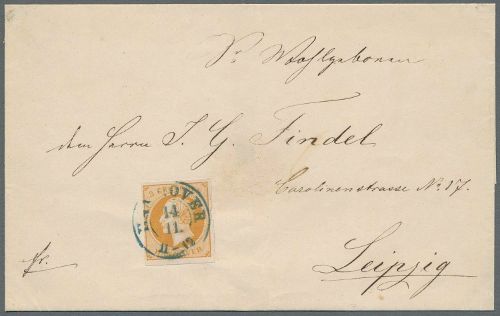 Sr. Wohlgeboren
dem Herrn J. G. Findel
Carolinenstrasse No. 17.
HANNOVER
14
11.
fr.
Leipzig